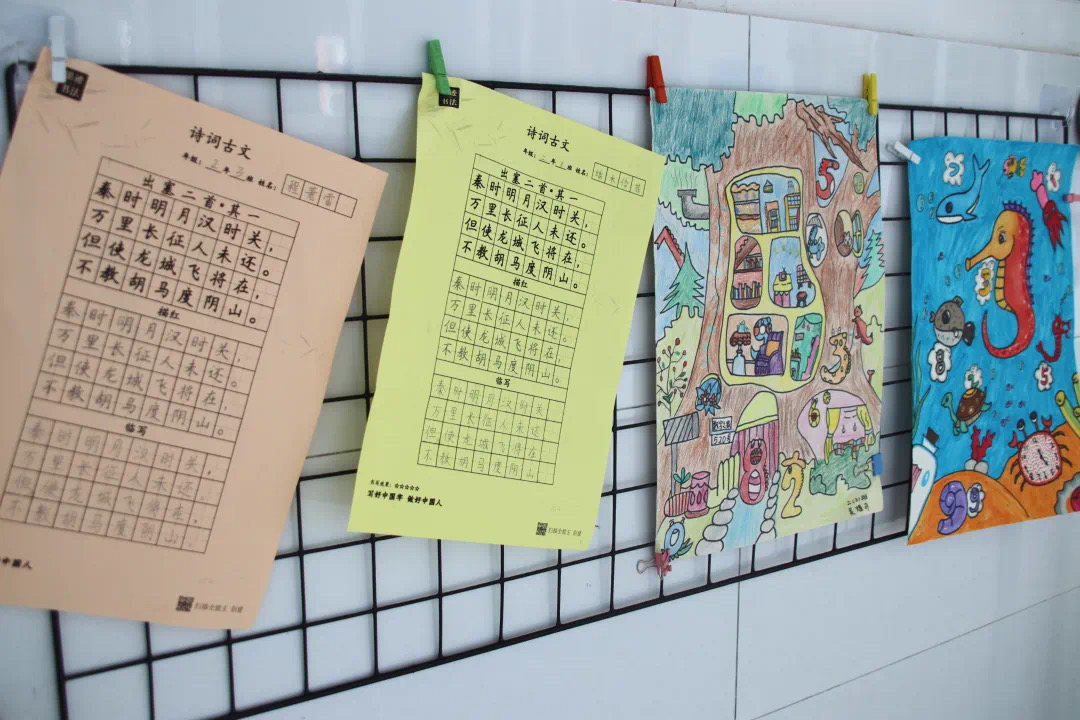 书法
诗词古文
年级：2年3班 姓名：
出塞二首·其一
秦时明月汉时关，
万里长征人未还。
但使龙城飞将在，
不教胡马度阴山。
描红
秦时明月汉时关，
万里长征人未还。
但使龙城飞将在，
不教胡马度阴山。
临写
秦时明月汉时关，
万里长征人未还。
但使龙城飞将在，
不教胡马度阴山.
中国人
扫描全能王 创建
书法
诗词古文
年级：二年1班 姓名：
出塞二首·其一
秦时明月汉时关，
万里长征人未还。
但使龙城飞将在，
不教胡马度阴山。
描红
秦时明月汉时关，
万里长征人未还。
但使龙城飞将在，
不教胡马度阴山。
临写
秦时明月汉时关
万里长征人未还.
但使龙城飞将在
不教胡马度阴山.
书写效果：☆☆☆☆☆
写好中国字 做好中国人
扫描全能王 创建
5
3
8
2
0
2
3
8
5
99